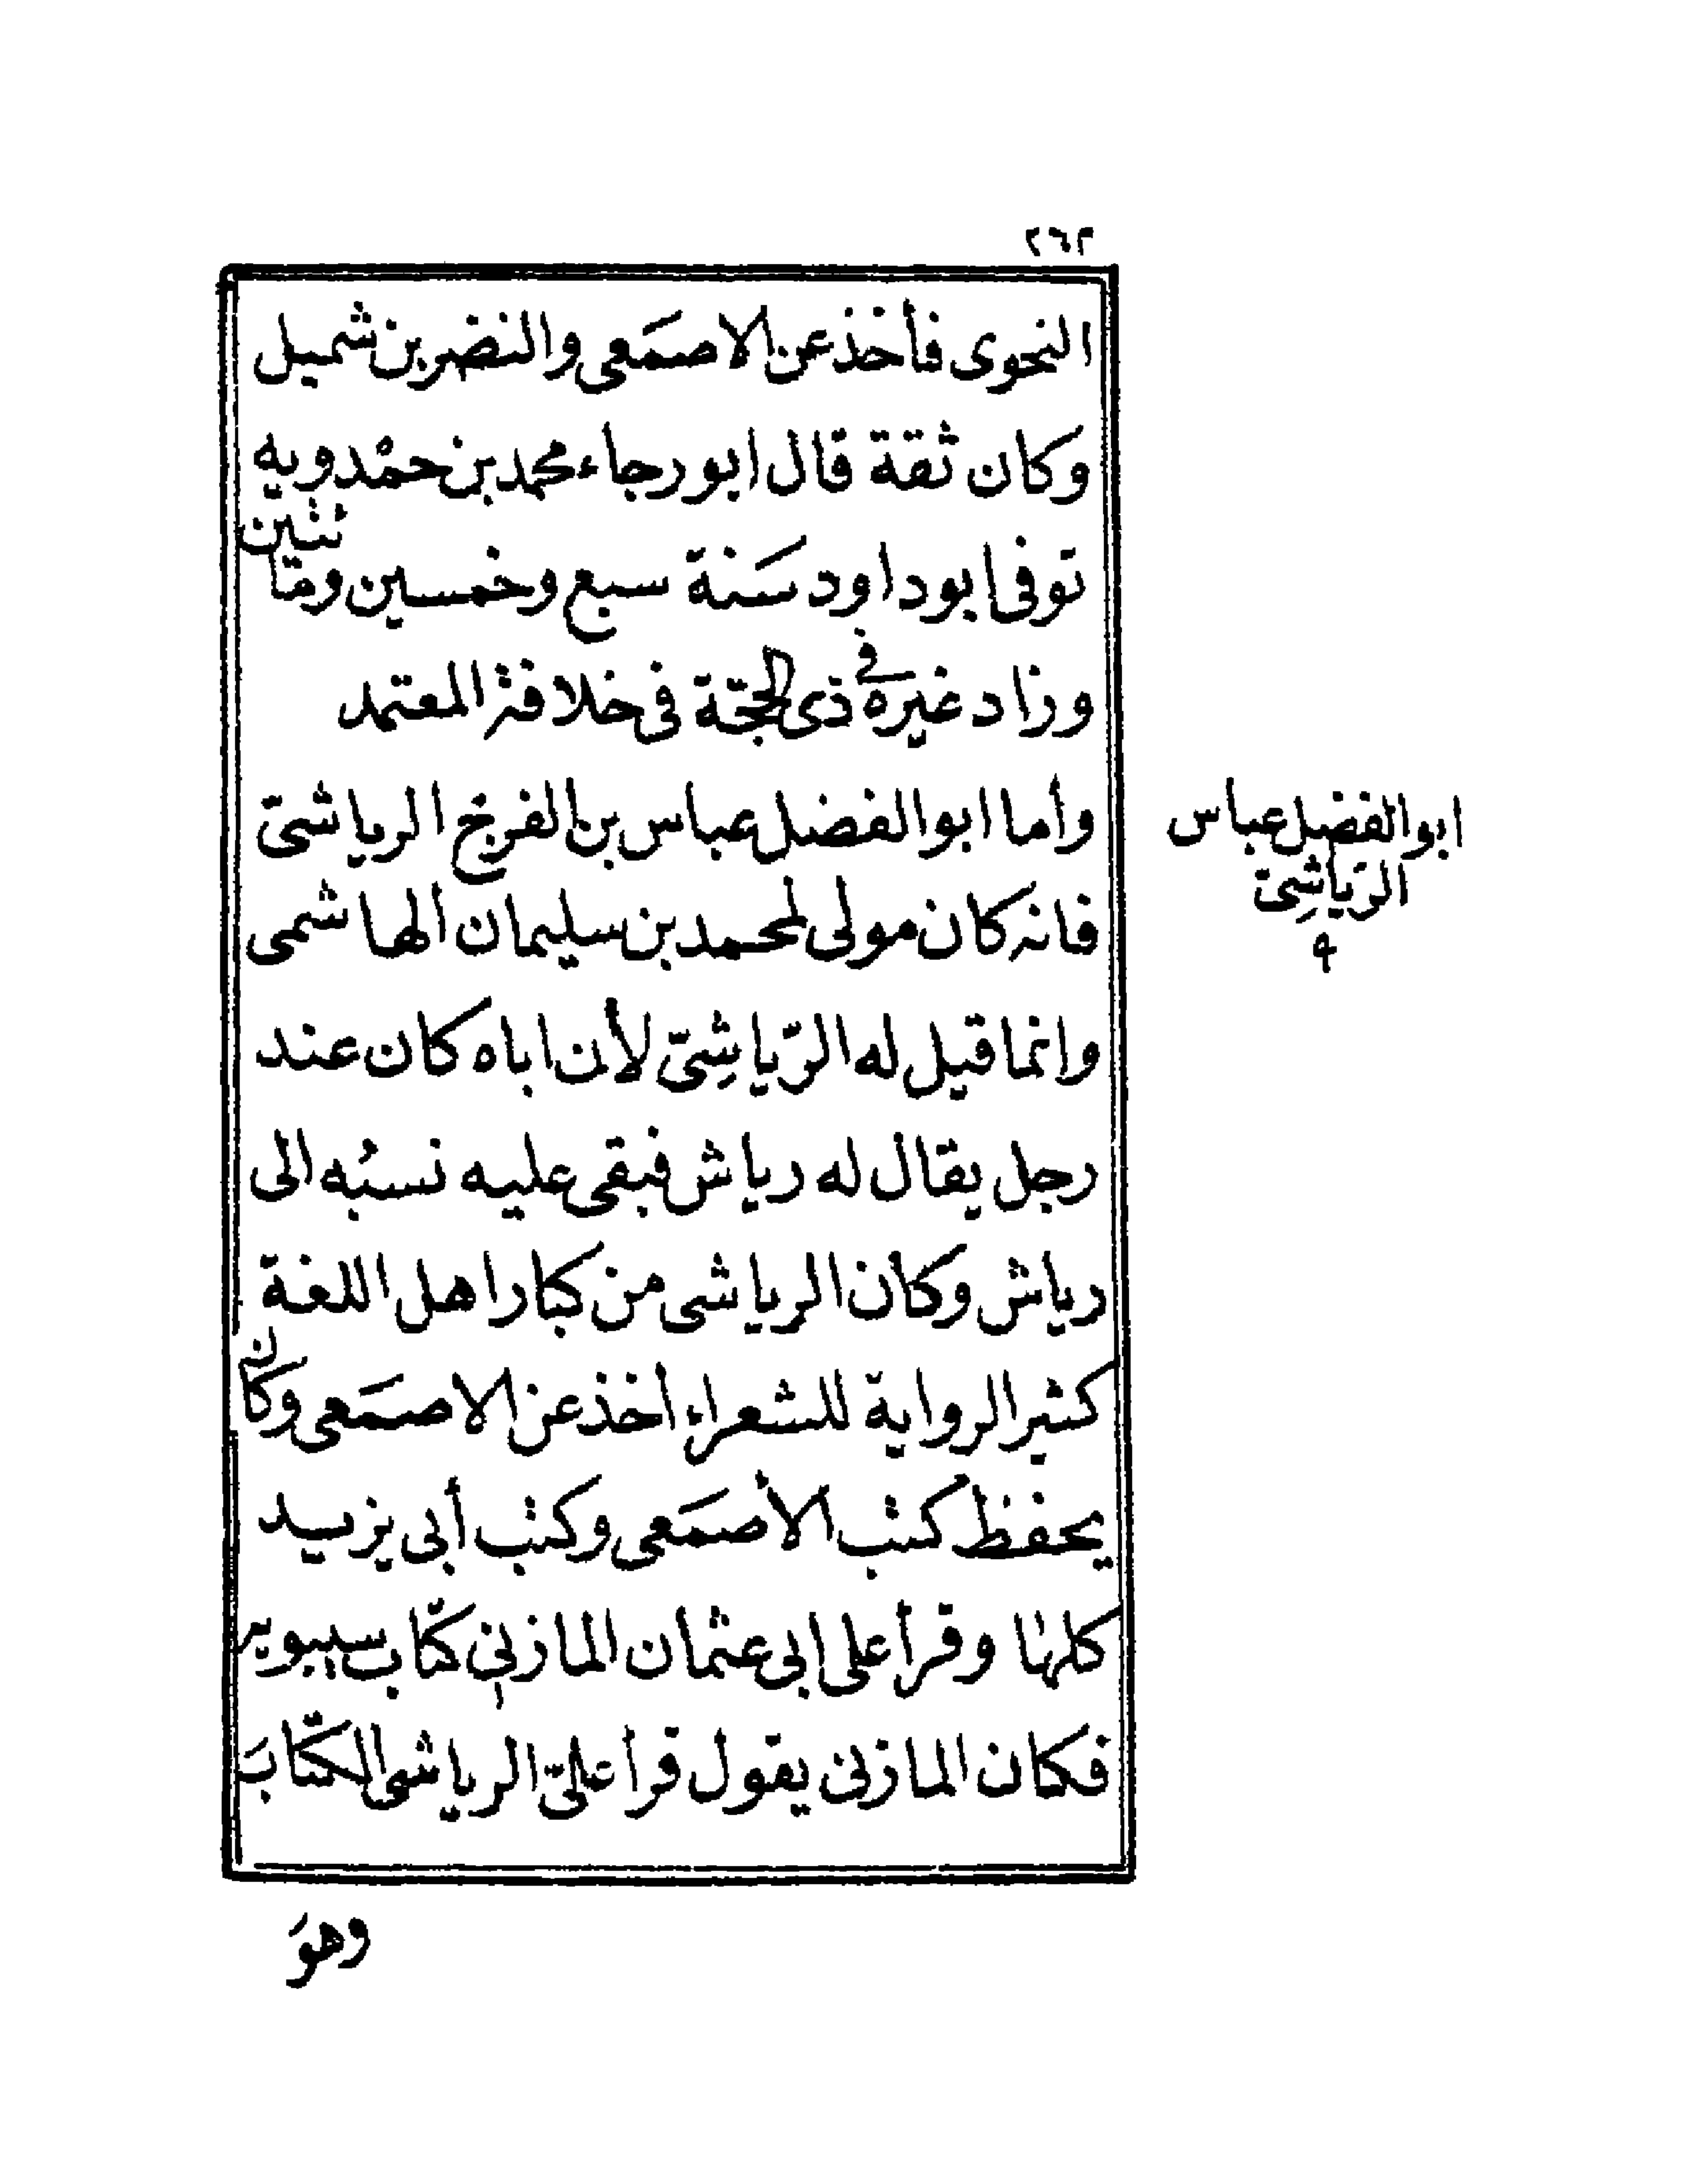 ٢٦٢
النحوى فأخذ عن الاصمَعى والنضر بن شميل
وكان ثقة قال ابو رجاء محمد بن حمْدويه
توفى ابو داود سَنة سبع وخمسين ومائتين
وزاد غيره فى ذى الحجّة فى خلافة المعتمد
وأما ابو الفضل عباس بن الفرج الرياشىّ
فانه كان مولى لمحمد بن سليمان الهاشمى
وانما قيل له الرّياشِىّ لأن اباه كان عند
رجل يقال له رياش فبقى عليه نسبُه الى
رياش وكان الرياشى من كبار اهل اللغة
كثير الرواية للشعراء أخذ عن الاصمَعى وكان
يحفظ كتب الأصمَعى وكتب أبى يزيد
كلها وقرأ على ابى عثمان المازنى كتاب سيبويه
فكان المازنى يقول قرأ علىّ الرياشى الكتابَ
وهوَ
ابو الفضل عباس
الرّياشِىّ
٩